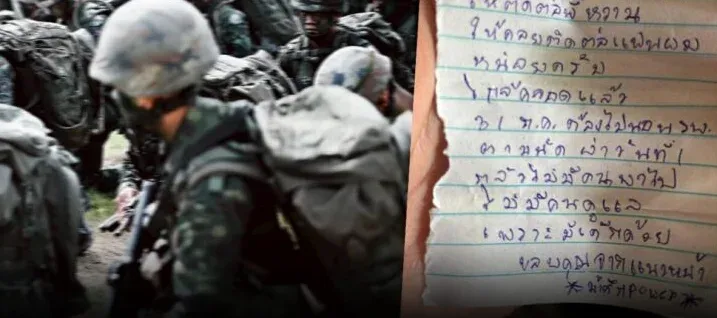 ให้ติดต่อพี่หวาน
ให้คอยติดต่อแฟนผม
หน่อยครับ
ใกล้คลอดแล้ว
31 ก.ค. ต้องไปนอน รพ.
ตามนัด ผ่าวันที่ 1
กลัวไม่มีคนพาไป
ไม่มีคนดูแล
เพราะมีเด็กด้วย
ขอบคุณจากแนวหน้า